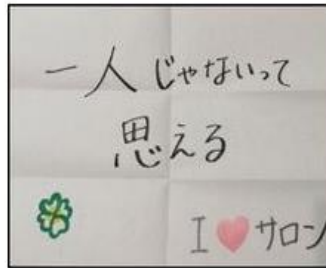 一人じゃないって
思える
I❤サロン